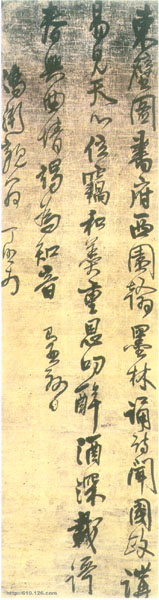 東壁圖書府西園翰墨林誦詩聞國政講
易見天心位竊和羹重恩叨醉酒深載
春興曲情竭為知音
親翁
http://610.126.com